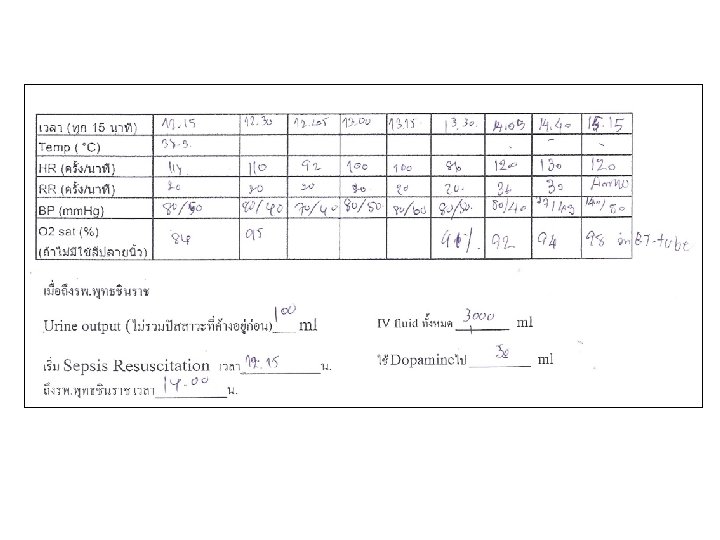 เวลา (ทุก 15 นาที) 11.15 12.30 12.45 13.00 13.15 13.30 14.05 14.40 15.15
Temp ( °C) - -
HR (ครั้ง/นาที) 110 92 100 100 86 120 130 120
RR (ครั้ง/นาที) 20 20 20 20 20 20. 36 30
BP (mmHg) 80/50 80/40 70/40 80/50 80/60 80/50. 80/40 140/80
O2 sat (%) 84 95 91%. 92 94 98 on ET-tube
(ถ้าไม่มีใช้สีปลายนิ้ว)
เมื่อถึงรพ.พุทธชินราช
Urine output (ไม่รวมปัสสาวะที่ค้างอยู่ก่อน) 100 ml
IV fluid ทั้งหมด 3000 ml
เริ่ม Sepsis Resuscitation เวลา 12.15 น.
ใช้ Dopamineไป 30 ml
ถึงรพ.พุทธชินราช เวลา 14.00 น.